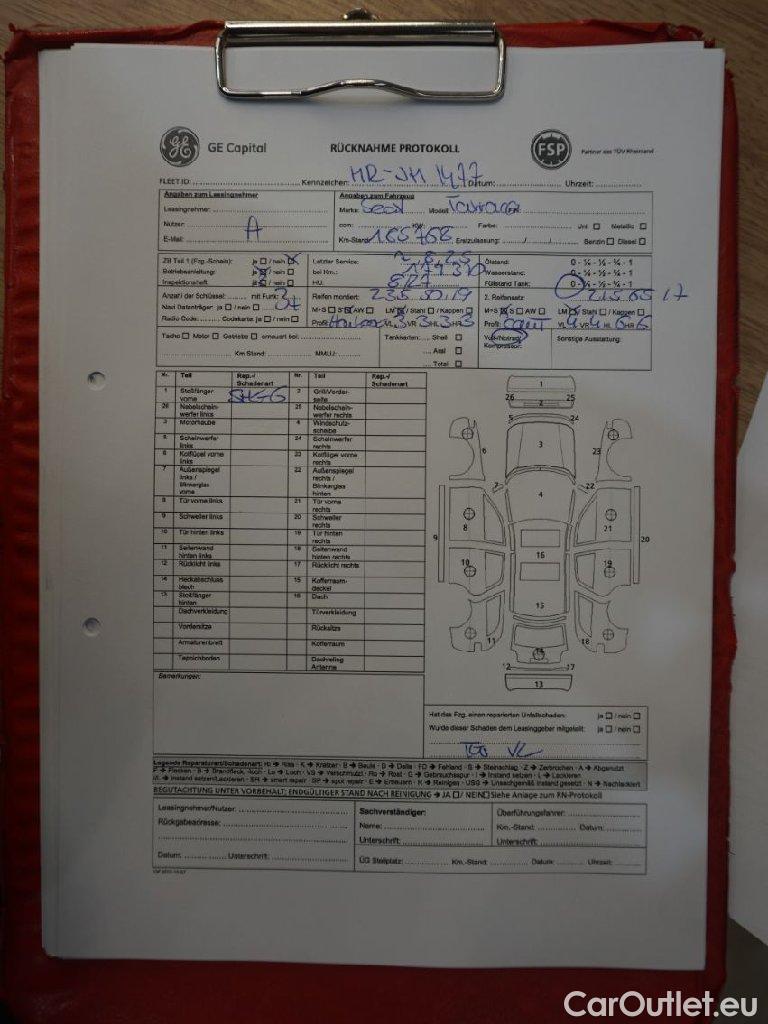 GE Capital RÜCKNAHME PROTOKOLL FSP Partner des TÜV Rheinland
FLEET ID: Kennzeichen: MR-JM 1477 Datum: Uhrzeit:
Angaben zum Leasingnehmer Angaben zum Fahrzeug
Leasingnehmer: Marke: Seat Modell:
Nutzer: A ccm: KW: Farbe: Uni ☐ Metallic ☐
E-Mail: Km-Stand: 185768 Erstzulassung: / Benzin ☐ Diesel ☐
ZB Teil 1 (Fzg.-Schein): ja ☐ / nein ☐ Letzter Service: Ölstand: 0 - ¼ - ½ - ¾ - 1
Betriebsanleitung: ja ☐ / nein ☐ bei Km.: Wasserstand: 0 - ¼ - ½ - ¾ - 1
Inspektionsheft ja ☐ / nein ☐ HU: 8/27 Füllstand Tank: 0 - ¼ - ½ - ¾ - 1
Anzahl der Schlüssel: mit Funk: Reifen montiert: 235 50 19 2. Reifensatz: 215 65 17
Navi Datenträger: ja ☐ / nein ☐ M+S ☐ S ☐ AW ☐ LM ☐ / Stahl ☐ / Kappen ☐ M+S ☐ S ☐ AW ☐ LM ☐ / Stahl ☐ / Kappen ☐
Radio Code: Codekarte: ja ☐ / nein ☐ Profil: VL 3 VR 3 HL 3 HR 3 Profil: VL 4 VR 4 HL 6 HR 6
Tacho ☐ Motor ☐ Getriebe ☐ erneuert bei: Tankkarten: Shell ☐ Voll-/Notrad: Sonstige Ausstattung:
Km Stand: MM/JJ: Aral ☐ Kompressor:
Total ☐
Nr. Teil Rep.-/ Schadenart Nr. Teil Rep.-/ Schadenart
1 Stoßfänger vorne 2 Grill/Vorderseite
26 Nebelscheinwerfer links 25 Nebelscheinwerfer rechts
3 Motorhaube 4 Windschutzscheibe
5 Scheinwerfer links 24 Scheinwerfer rechts
6 Kotflügel vorne links 23 Kotflügel vorne rechts
7 Außenspiegel links / Blinkerglas vorne 22 Außenspiegel rechts / Blinkerglas hinten
8 Tür vorne links 21 Tür vorne rechts
9 Schweller links 20 Schweller rechts
10 Tür hinten links 19 Tür hinten rechts
11 Seitenwand hinten links 18 Seitenwand hinten rechts
12 Rücklicht links 17 Rücklicht rechts
14 Heckabschlussblech 15 Kofferraumdeckel
13 Stoßfänger hinten 16 Dach
Dachverkleidung Türverkleidung
Vordersitze Rücksitze
Armaturenbrett Kofferraum
Teppichboden Dachreling Antenne
1
26 2 25
5 24
6 3 23
7 22
4
8 21
9 20
10 16 19
15
11 14 18
12 17
13
Bemerkungen:
Hat das Fzg. einen reparierten Unfallschaden: ja ☐ / nein ☐
Wurde dieser Schaden dem Leasinggeber mitgeteilt: ja ☐ / nein ☐
BEGUTACHTUNG UNTER VORBEHALT; ENDGÜLTIGER STAND NACH REINIGUNG → JA ☐ / NEIN ☐ Siehe Anlage zum RN-Protokoll
Leasingnehmer/Nutzer: Sachverständiger: Überführungsfahrer:
Rückgabeadresse: Name: Km.-Stand: Datum:
Unterschrift: Unterschrift:
Datum: Unterschrift: ÜG Stellplatz: Km.-Stand: Datum: Uhrzeit:
CarOutlet.eu